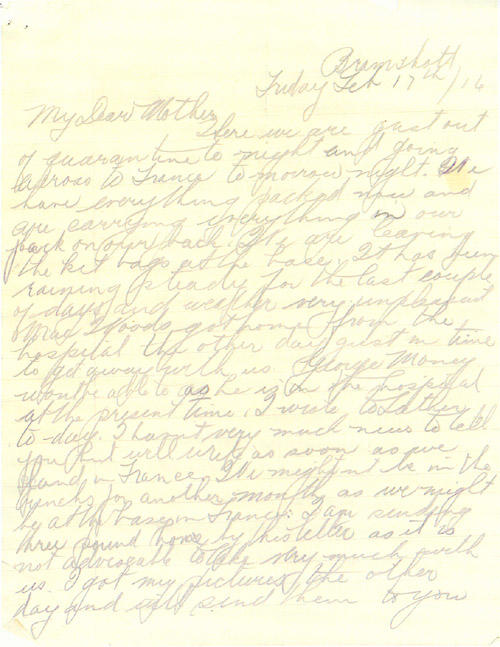 Bramshott
Friday Feb 17th/16
My Dear Mother
Here we are just out
of quarantine to night and going
across to France to morrow night. We
have everything packed now and
are carrying everything in our
pack on our back. We are leaving
the kit bags at the base. It has been
raining steady for the last couple
of days and weather very unpleasant
Max Woods got home from the
hospital the other day just in time
to go away with us. George Money
wont be able to as he is in the hospital
at the present time. I wrote to Father
to day. I havnt very much news to tell
you but will write as soon as we
land in France. We mightnt be in the
trenches for another month as we might
be at the base in France. I am sending
three pound home by this letter as it is
not advisable to take very much with
us. I got my pictures the other
day and will send them to you